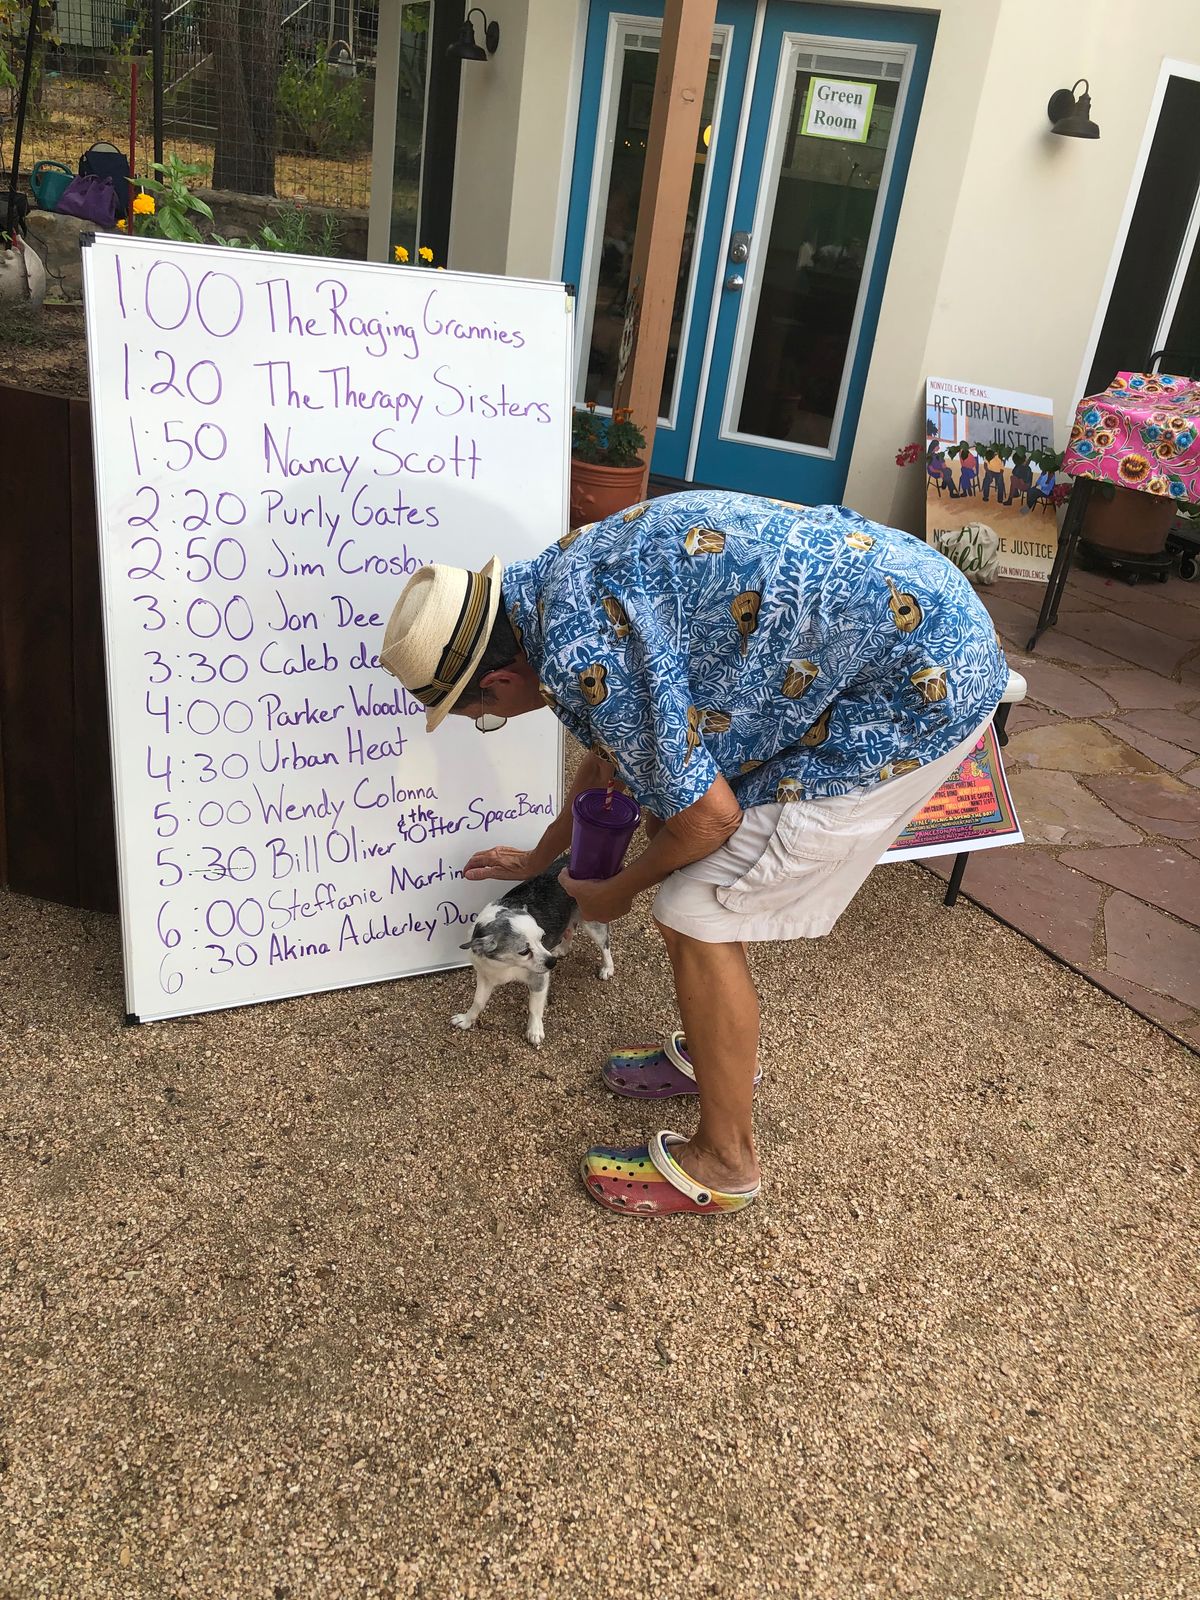 Green
Room
1:00 The Raging Grannies
1:20 The Therapy Sisters
1:50 Nancy Scott
2:20 Purly Gates
2:50 Jim Crosby
3:00 Jon Dee
3:30 Caleb de
4:00 Parker Woodla
4:30 Urban Heat
5:00 Wendy Colonna
5:30 Bill Oliver & the Otter Space Band
6:00 Steffanie Martin
6:30 Akina Adderley Duo
NONVIOLENCE MEANS...
RESTORATIVE
JUSTICE
VE JUSTICE
IGN NONVIOLENCE
2023
NANCY SCOTT